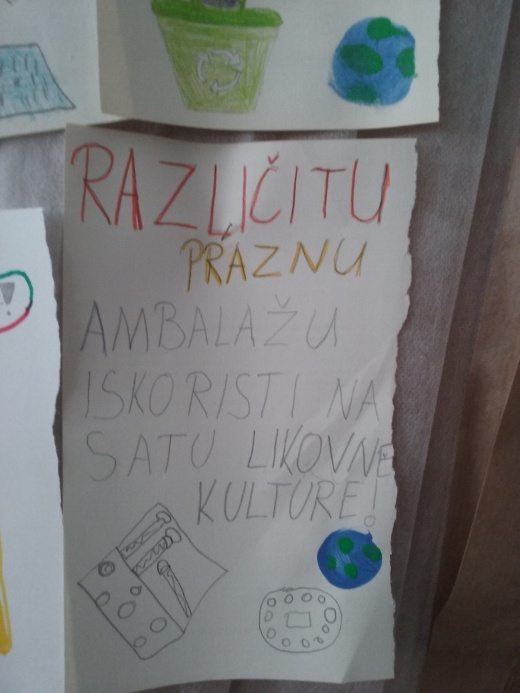 RAZLIČITU
PRAZNU
AMBALAŽU
ISKORISTI NA
SATU LIKOVNE
KULTURE!